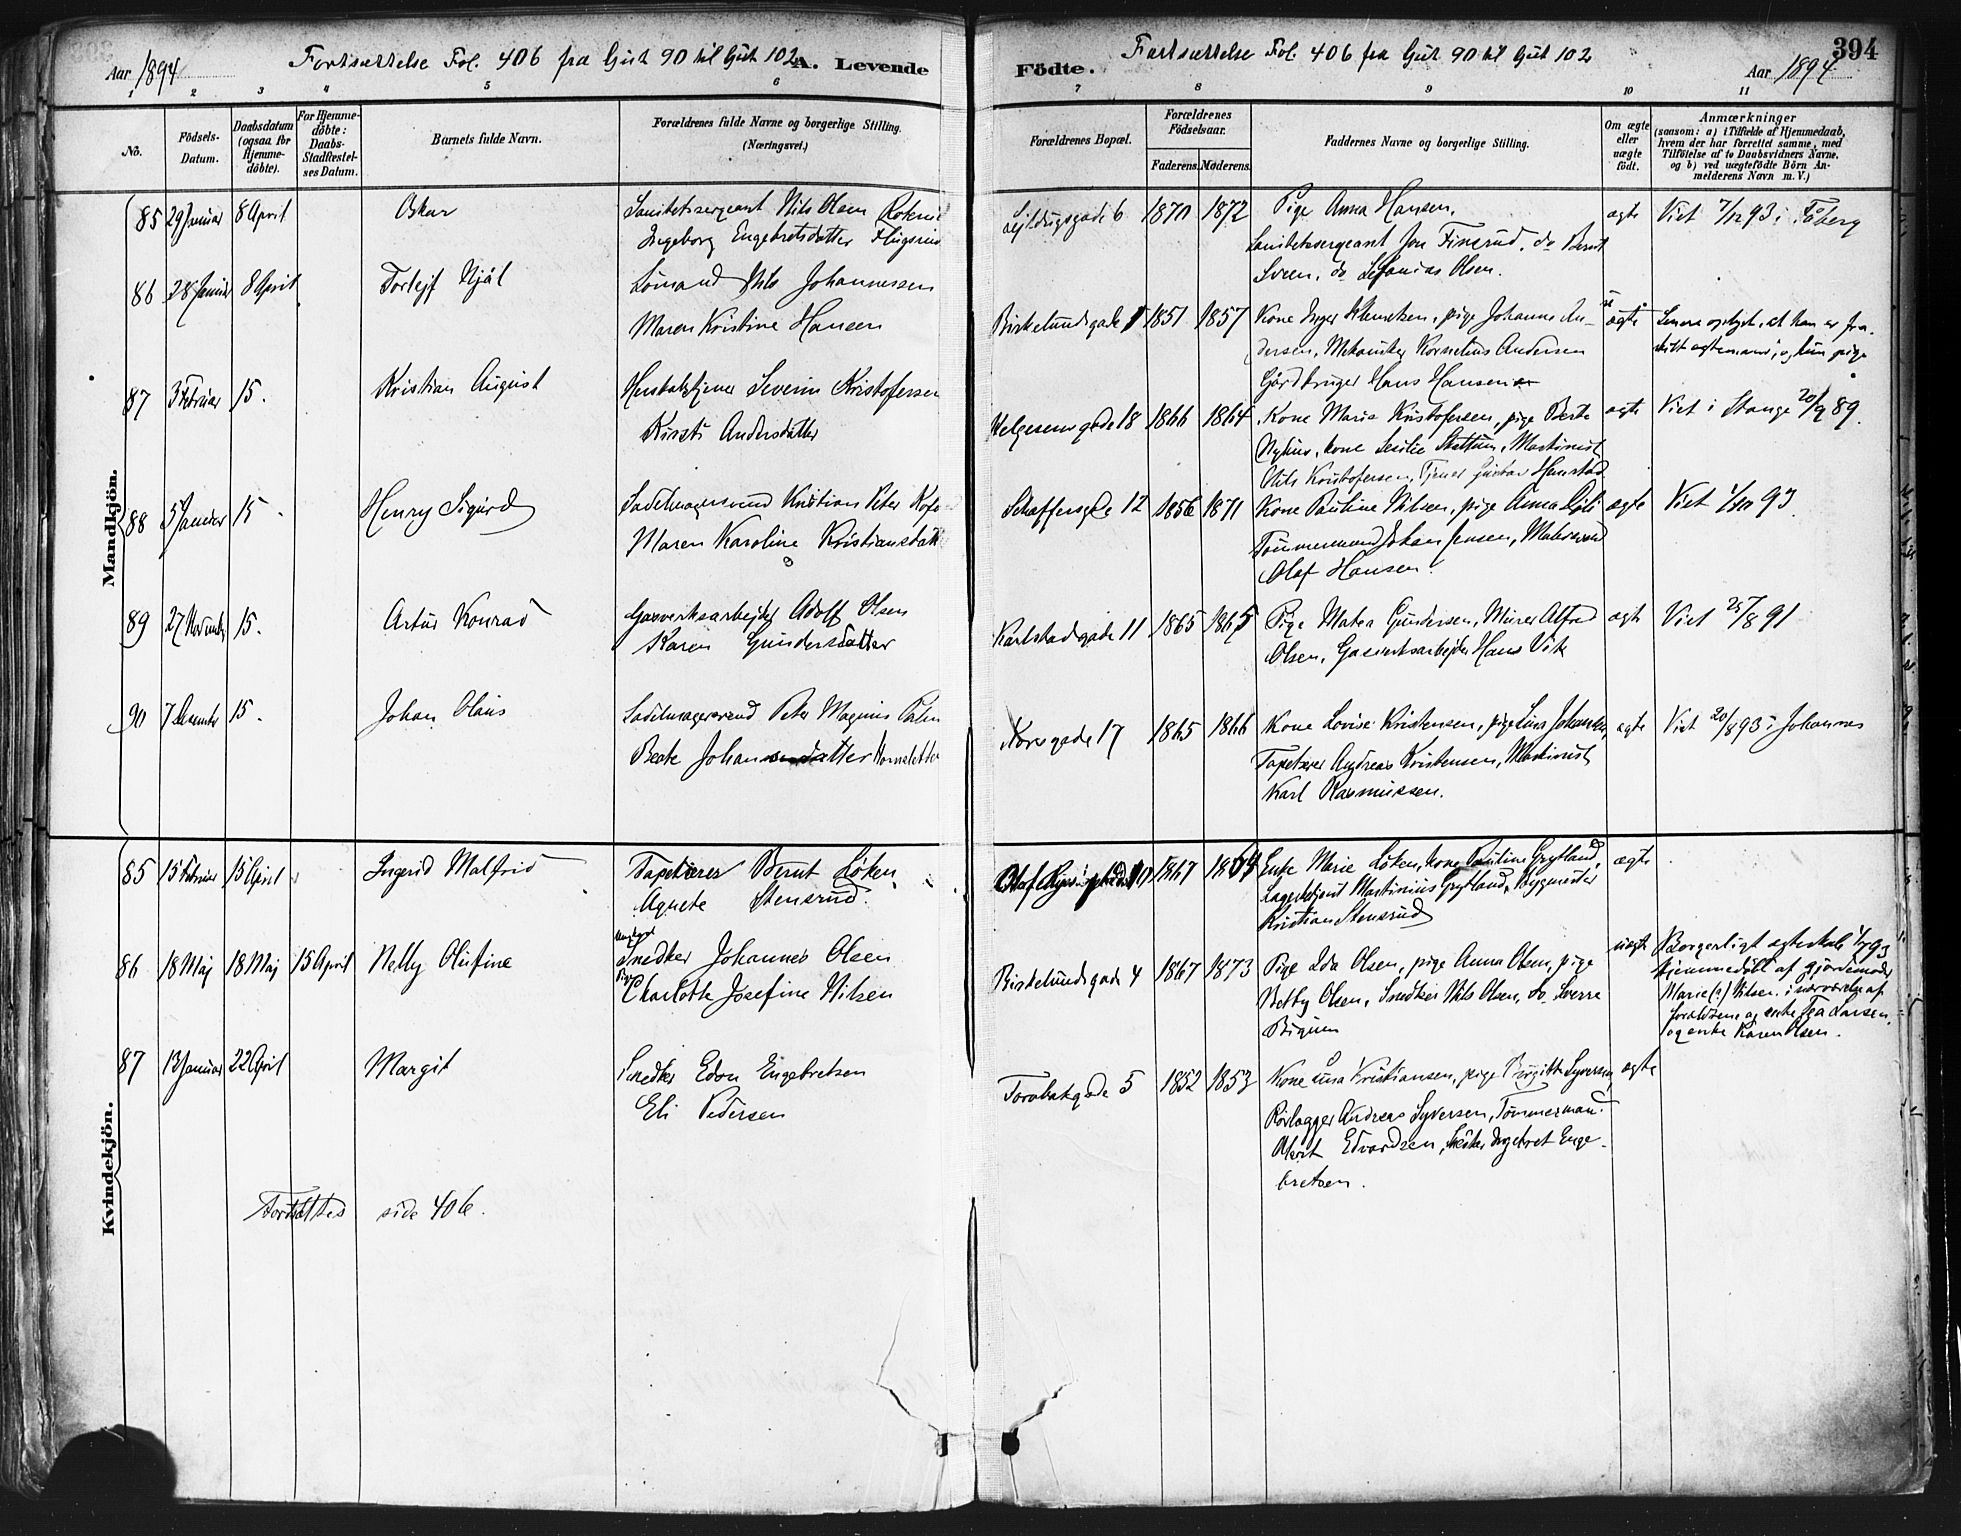 Aar 1894
Fortsættelse Fol. 406 fra Gut 90 til Gut 102
A. Levende
Födte.
Fortsættelse Fol. 406 fra Gut 90 til Gut 102
394
Aar 1894
1 2 3 4 5 6 7 8 9 10 11
No.
Födsels-Datum.
Daabsdatum (ogsaa for Hjemme-döbte).
For Hjemme-döbte: Daabs-Stadfæstel-ses Datum.
Barnets fulde Navn.
Forældrenes fulde Navne og borgerlige Stilling. (Næringsvei.)
Forældrenes Bopæl.
Forældrenes Födselsaar.
Faderens. Moderens.
Faddernes Navne og borgerlige Stilling.
Om ægte eller uægte födt.
Anmærkninger
(saasom: a) i Tilfælde af Hjemmedaab,
hvem der har forrettet samme, med
Tilföielse af to Daabsvidners Navne,
og b) ved uægtefödte Börn An-
melderens Navn m. V.)
Mandkjön.
85 29 Januar 8 April Oskar
Sanitetssergeant Nils Olsen
Ingeborg Engebretsdatter
6 1870 1872
Pige Anna Hansen.
Sanitetssergeant Jon Finsrud, do Bernt
Sveen, do Olsen.
ægte
Viet 7/12 93 i Fåberg
86 28 Januar 8 April Torlejf Njål
Nils Johannessen
Maren Kristine Hansen
Birkelundsgade 1851 1857
Kone Inger pige Johanne An-
dersen, Mekaniker Kornelius Andersen
Gårdbruger Hans Hansen
u ægte
Senere oplyst, at han er fra-
skilt ægtemand, og hun pige
87 3 Februar 15. Kristian August
Severin Kristofersen
Andersdatter
Helgesensgade 18 1866 1864
Kone Marie Kristofersen, pige Berte
kone Maskinist
Nils Kristofersen, Tjener Gustav
ægte
Viet i Stange 20/9 89.
88 5 Januar 15. Henry Sigurd
Sadelmagersvend Kristian Peter
Maren Karoline
12 1856 1871
Kone Pauline Nilsen, pige Anna
Tömmermand Johan Jensen, Malersvend
Olaf Hansen.
ægte
Viet 93
89 27 November 15. Artur Konrad
Gasverksarbejder Adolf Olsen
Karen Gundersdatter
Karlstadgade 11 1865 1865
Pige Matea Gundersen, Murer Alfred
Olsen, Gasverksarbejder Hans
ægte
Viet 25/8 91
90 7 Desember 15. Johan Olaus
Sadelmagersvend Peter Magnus
Beate
Korsgade 17 1865 1866
Kone Lovise Kristensen, pige
Tapetserer Andreas Kristensen, Maskinist
Karl Rasmussen.
ægte
Viet 20/8 93 i Johannes
Kvindekjön.
85 15 Februar 15 April Ingrid Malfrid
Tapetserer Bernt Löken
Agnete Stensrud.
1867 1864
Enke Marie Löken, kone Pauline Grytland,
Martinius Grytland, Bygmester
Kristian Stensrud
ægte
86 18 Maj 18 Maj 15 April Nelly Olufine
Ungkarl
Snedker Johannes Olsen
Pige
Charlotte Josefine Nilsen
Birkelundsgade 4 1867 1873
Pige Ida Olsen, pige Anna Olsen, pige
Betty Olsen, Snedker Nils Olsen, do Sverre
uægte
Borgerligt ægteskab 93
Hjemmedöbt af gjordemoder
Marie (?) Nilsen i nærværelse af
forældrene og enke Tea Larsen
og enke Karen Olsen.
87 13 Januar 22 April Margit
Snedker Edon Engebretsen
Eli Pedersen
Torvbakgade 5 1852 1853
Kone Lina Kristiansen, pige Birgitte Syversen
Rörlægger Andreas Syversen, Tömmermand
Edvardsen, Snedker Ingebret Enge-
bretsen.
ægte
Fortsættes side 406.